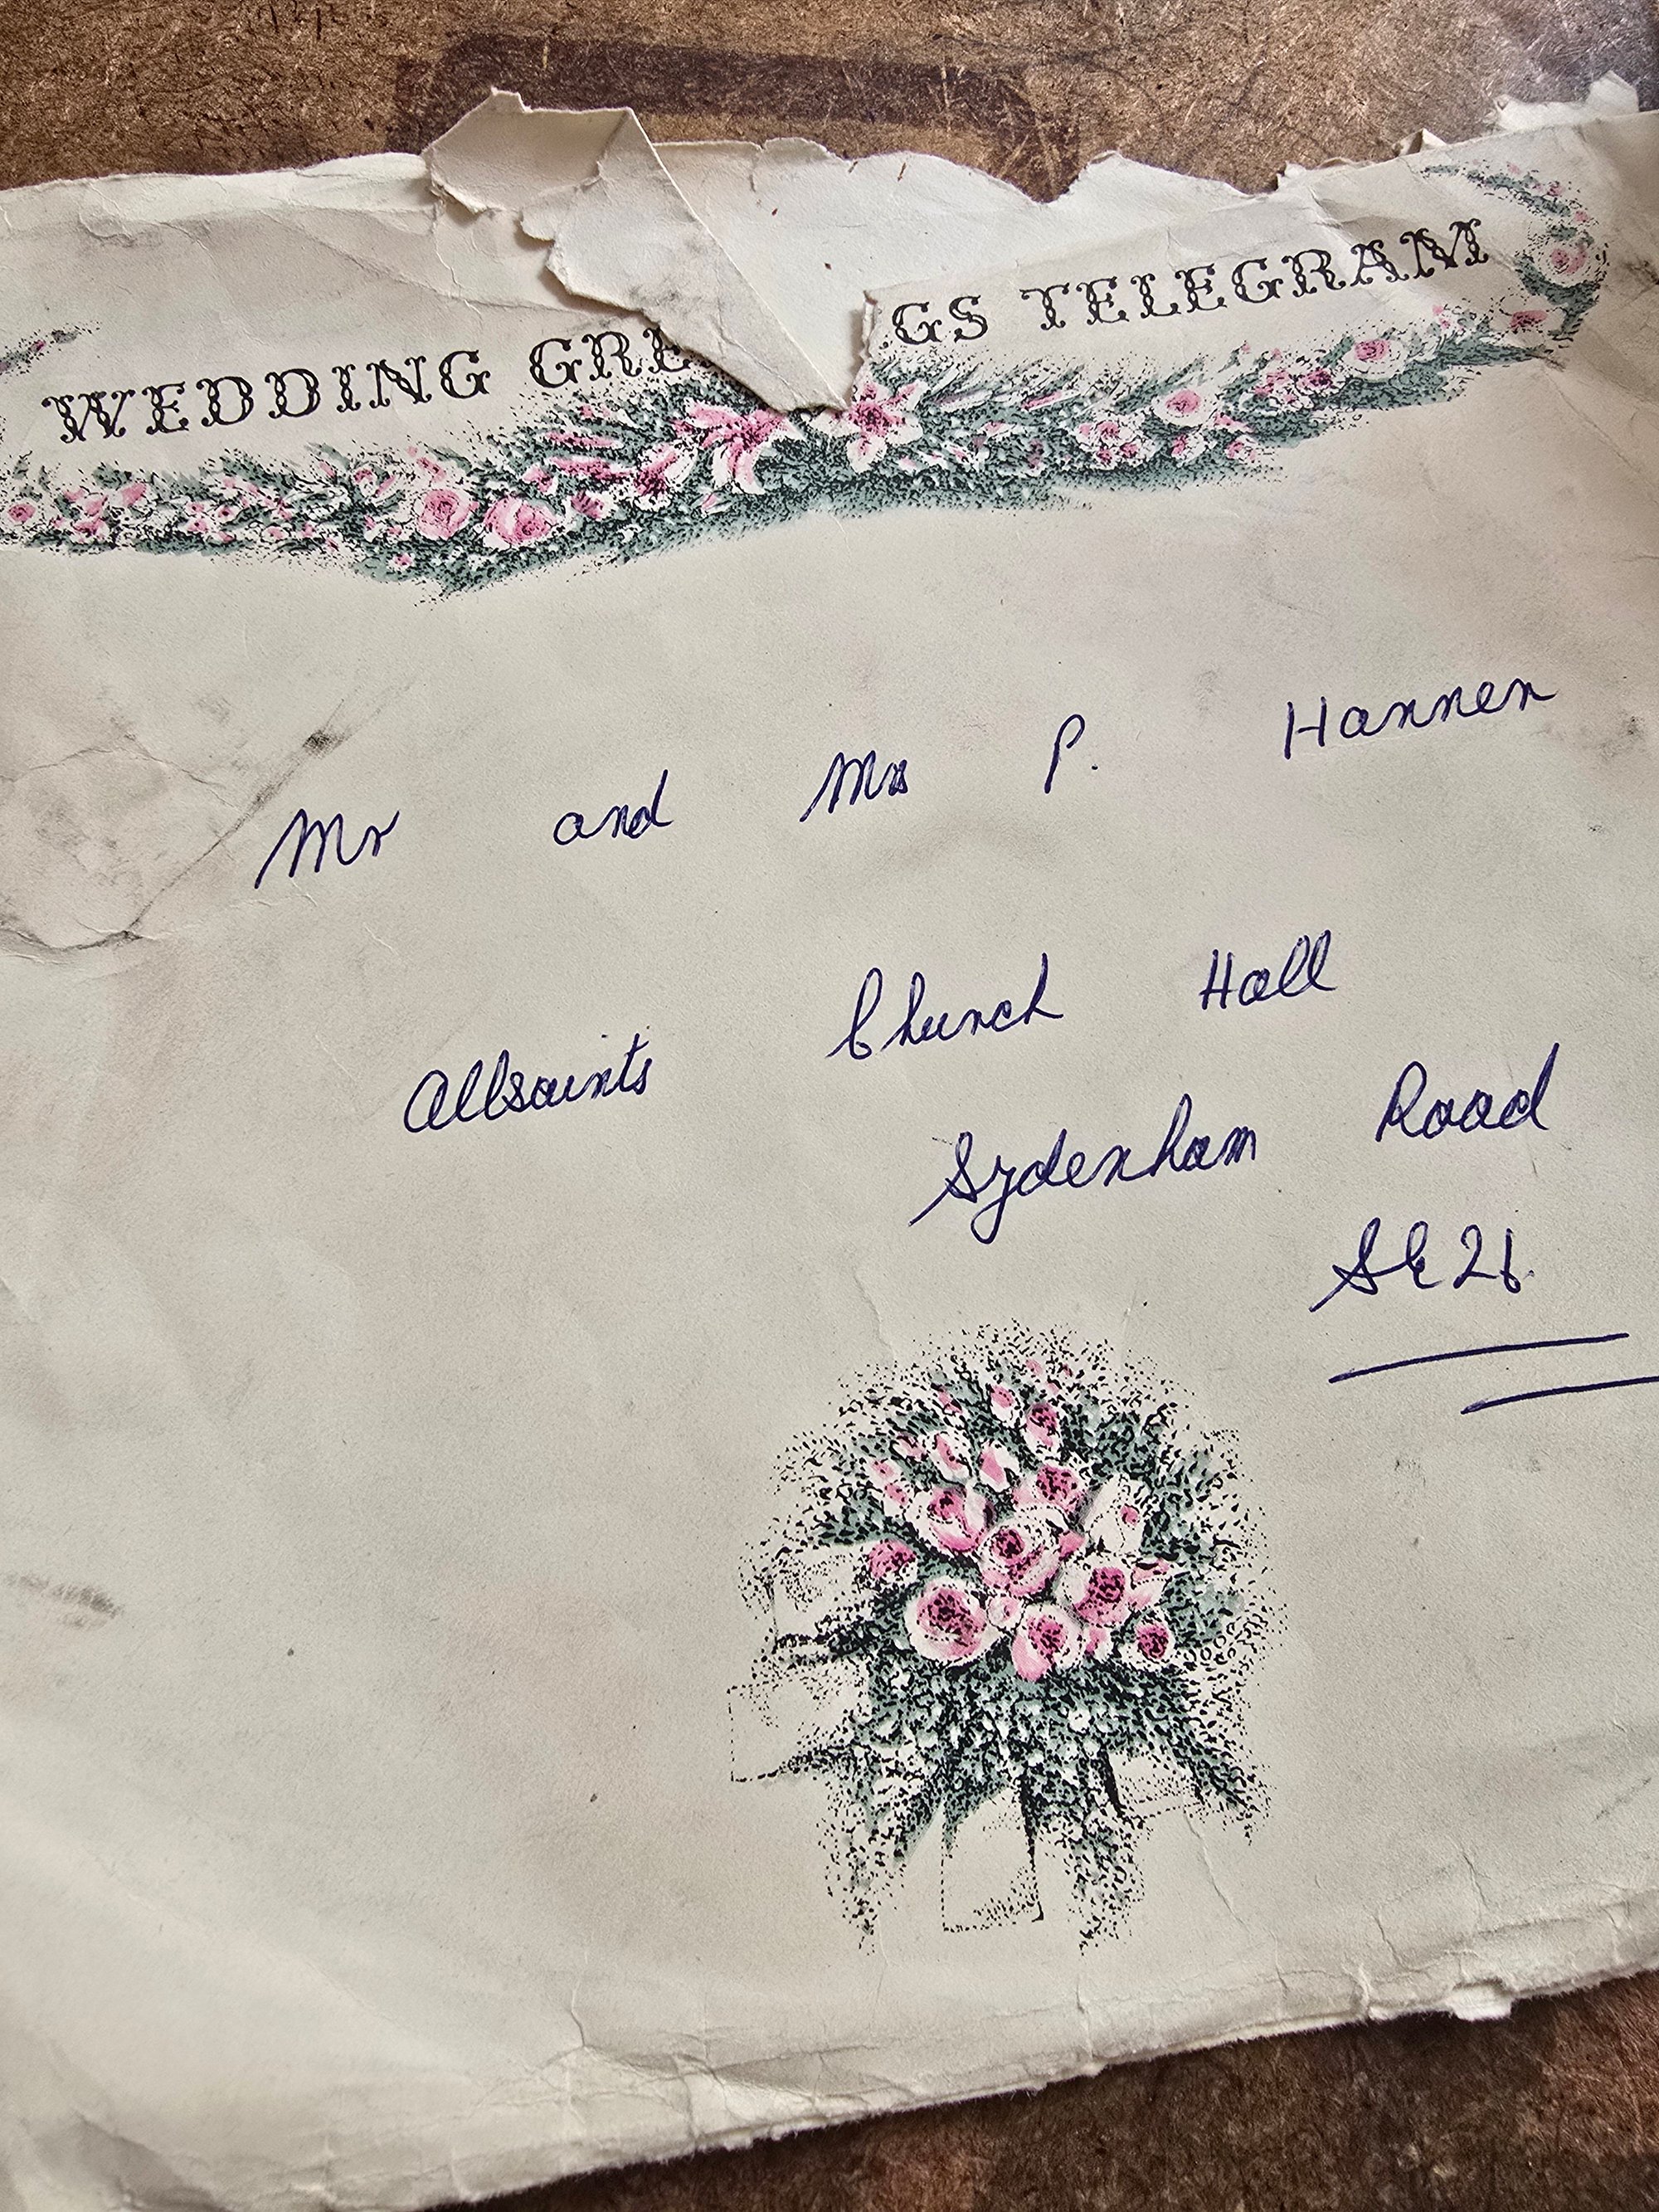 WEDDING GRE GS TELEGRAM
Mr and Mrs P. Hannen
Allsaints Church Hall
Sydenham Road
SE 26